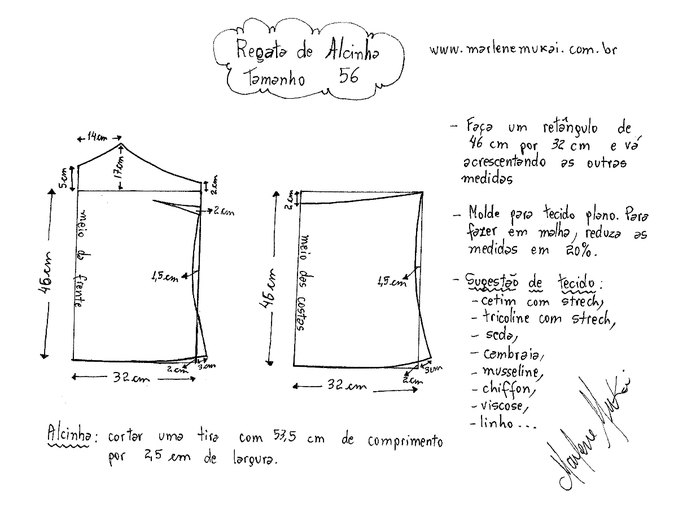 Regata de Alcinha
Tamanho 56
www.marlenemukai.com.br
14cm
17cm
5cm
2cm
2cm
46cm
meio da frente
1,5cm
2cm
3cm
32cm
2cm
46cm
meio das costas
1,5cm
2cm
3cm
32cm
- Faça um retângulo de
46 cm por 32 cm e vá
acrescentando as outras
medidas
- Molde para tecido plano. Para
fazer em malha, reduza as
medidas em 20%.
- Sugestão de tecido:
- cetim com strech,
- tricoline com strech,
- seda,
- cambraia,
- musseline,
- chiffon,
- viscose,
- linho...
Alcinha: cortar uma tira com 53,5 cm de comprimento
por 2,5 cm de largura.
Marlene Mukai